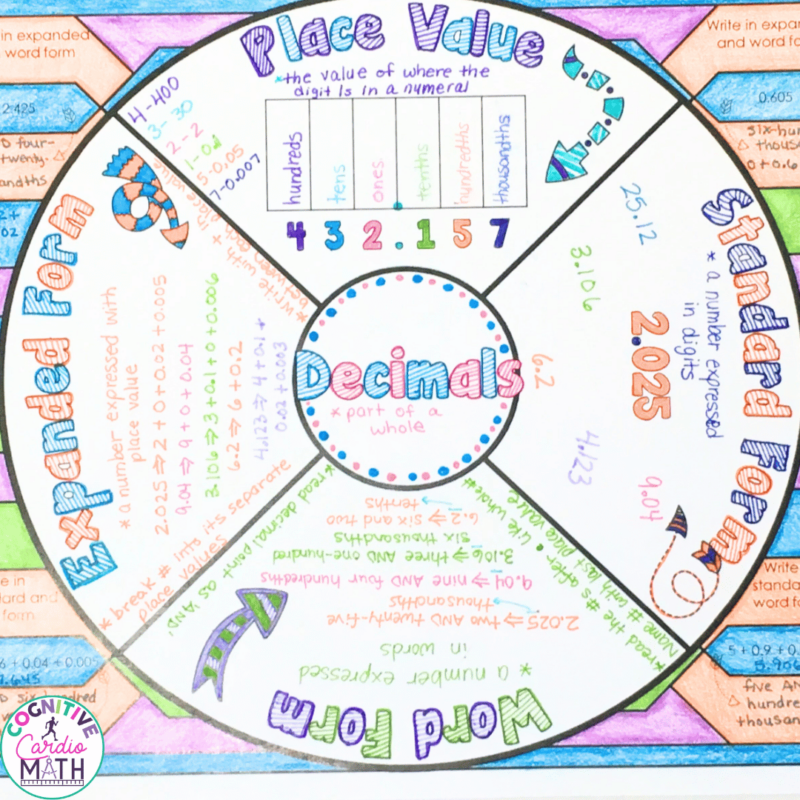 Place Value
*the value of where the
digit is in a numeral
hundreds
tens
ones
tenths
hundredths
thousandths
4 3 2 . 1 5 7
4-400
3-30
2-2
1-0.1
5-0.05
7-0.007
*write with + between each place value
Standard Form
* a number expressed
in digits
25.12
3.106
2.025
6.2
4.123
9.04
Word Form
* a number expressed
in words
2.025 ⇒ two AND twenty-five
thousandths
9.04 ⇒ nine AND four hundredths
3.106 ⇒ three AND one-hundred
six thousandths
6.2 ⇒ six and two
tenths
*read decimal point as 'AND'
*read the #s after . like whole #
Name # with last place value
Expanded Form
*a number expressed with
place value
2.025 ⇒ 2 + 0 + 0.02 + 0.005
9.04 ⇒ 9 + 0 + 0.04
3.106 ⇒ 3 + 0.1 + 0 + 0.006
6.2 ⇒ 6 + 0.2
4.123 ⇒ 4 + 0.1 +
0.02 + 0.003
* break # into its separate
place values
Decimals
*part of a
whole
in expanded
word form
2.425
four-
twenty-
Write in expan
and word fo
0.605
e in
ard and
form
6 + 0.04 + 0.005
Write
standa
word f
5 + 0.9 + 0.
five AN
hundre
thousan
COGNITIVE
Cardio
MATH